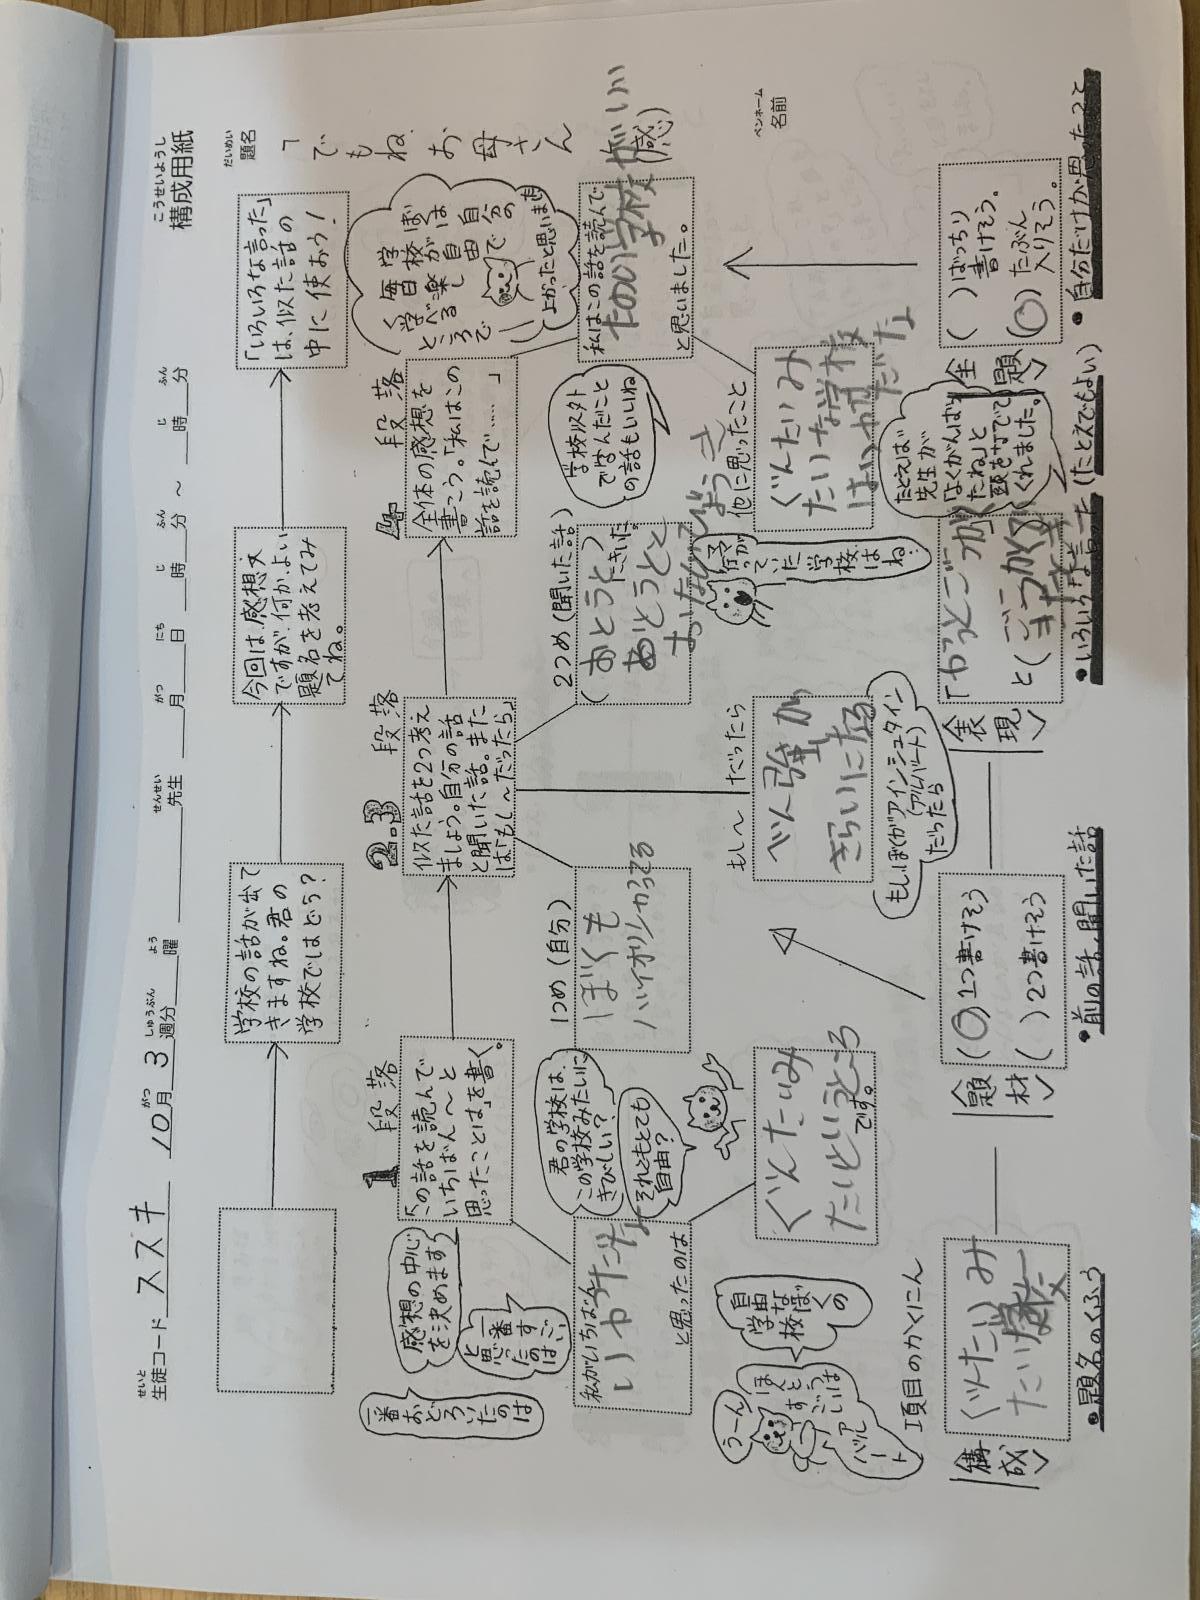 こうせいようし
構成用紙
せいと
生徒コード ススキ 10月 3週分 曜 先生 月 日 時 分 ～ 時 分
がつ しゅうぶん よう せんせい がつ にち じ ふん じ ふん
だいめい
題名
「でもね お母さん
ペンネーム
名前
学校の話が出て
きますね。君の
学校ではどう?
今回は、感想文
ですが、何か、よい
題名を考えてみ
てね。
「いろいろな言った」
は、似た話の
中に使おう!
1 段落
「この話を読んで
いちばん～と
思ったことは」を書く。
2.3 段落
似た話を2つ考え
ましょう。自分の話
と聞いた話。また
は「もし～だったら」
4 段落
全体の感想を
書こう。「私はこの
話を読んで……」
一番おどろいたのは
感想の中心
を決めます
一番すごい
と思ったのは
私がいちばん
と思ったのは
君の学校は、
この学校みたいに
きびしい?
それともとても
自由?
ぐんたいみ
たいというところ
です。
うーん
ほんとうに
すごいのは
自由な
学校
ぼくの
1つめ(自分)
ぼくも
バイオリンならってる
2つめ(聞いた話)
もし～だったら
べん強が
きらいになる
もしぼくがアインシュタイン
(アルバート)
だったら
ママが
行っていた
学校はね…
学校以外
で学んだこと
の話もいいね
ぼくは
学校が自由で
毎日楽しく
学べるところで
よかったと思います
私はこの話を読んで
たのの学校がいい
(感)
と思いました。
他に思ったこと
ぐんたいみ
たいな学校
項目のかくにん
構成
題材
(○)1つ書けそう
( )2つ書けそう
表現
主題
( )ばっちり
書けそう。
(○)たぶん
入りそう。
たとえば
先生が
「よくがんばっ
たね」と
頭をなでて
くれました。
●題名のくふう
●前の話、聞いた話
●いろいろな言った(たとえでもよい)
●自分だけが思ったこと